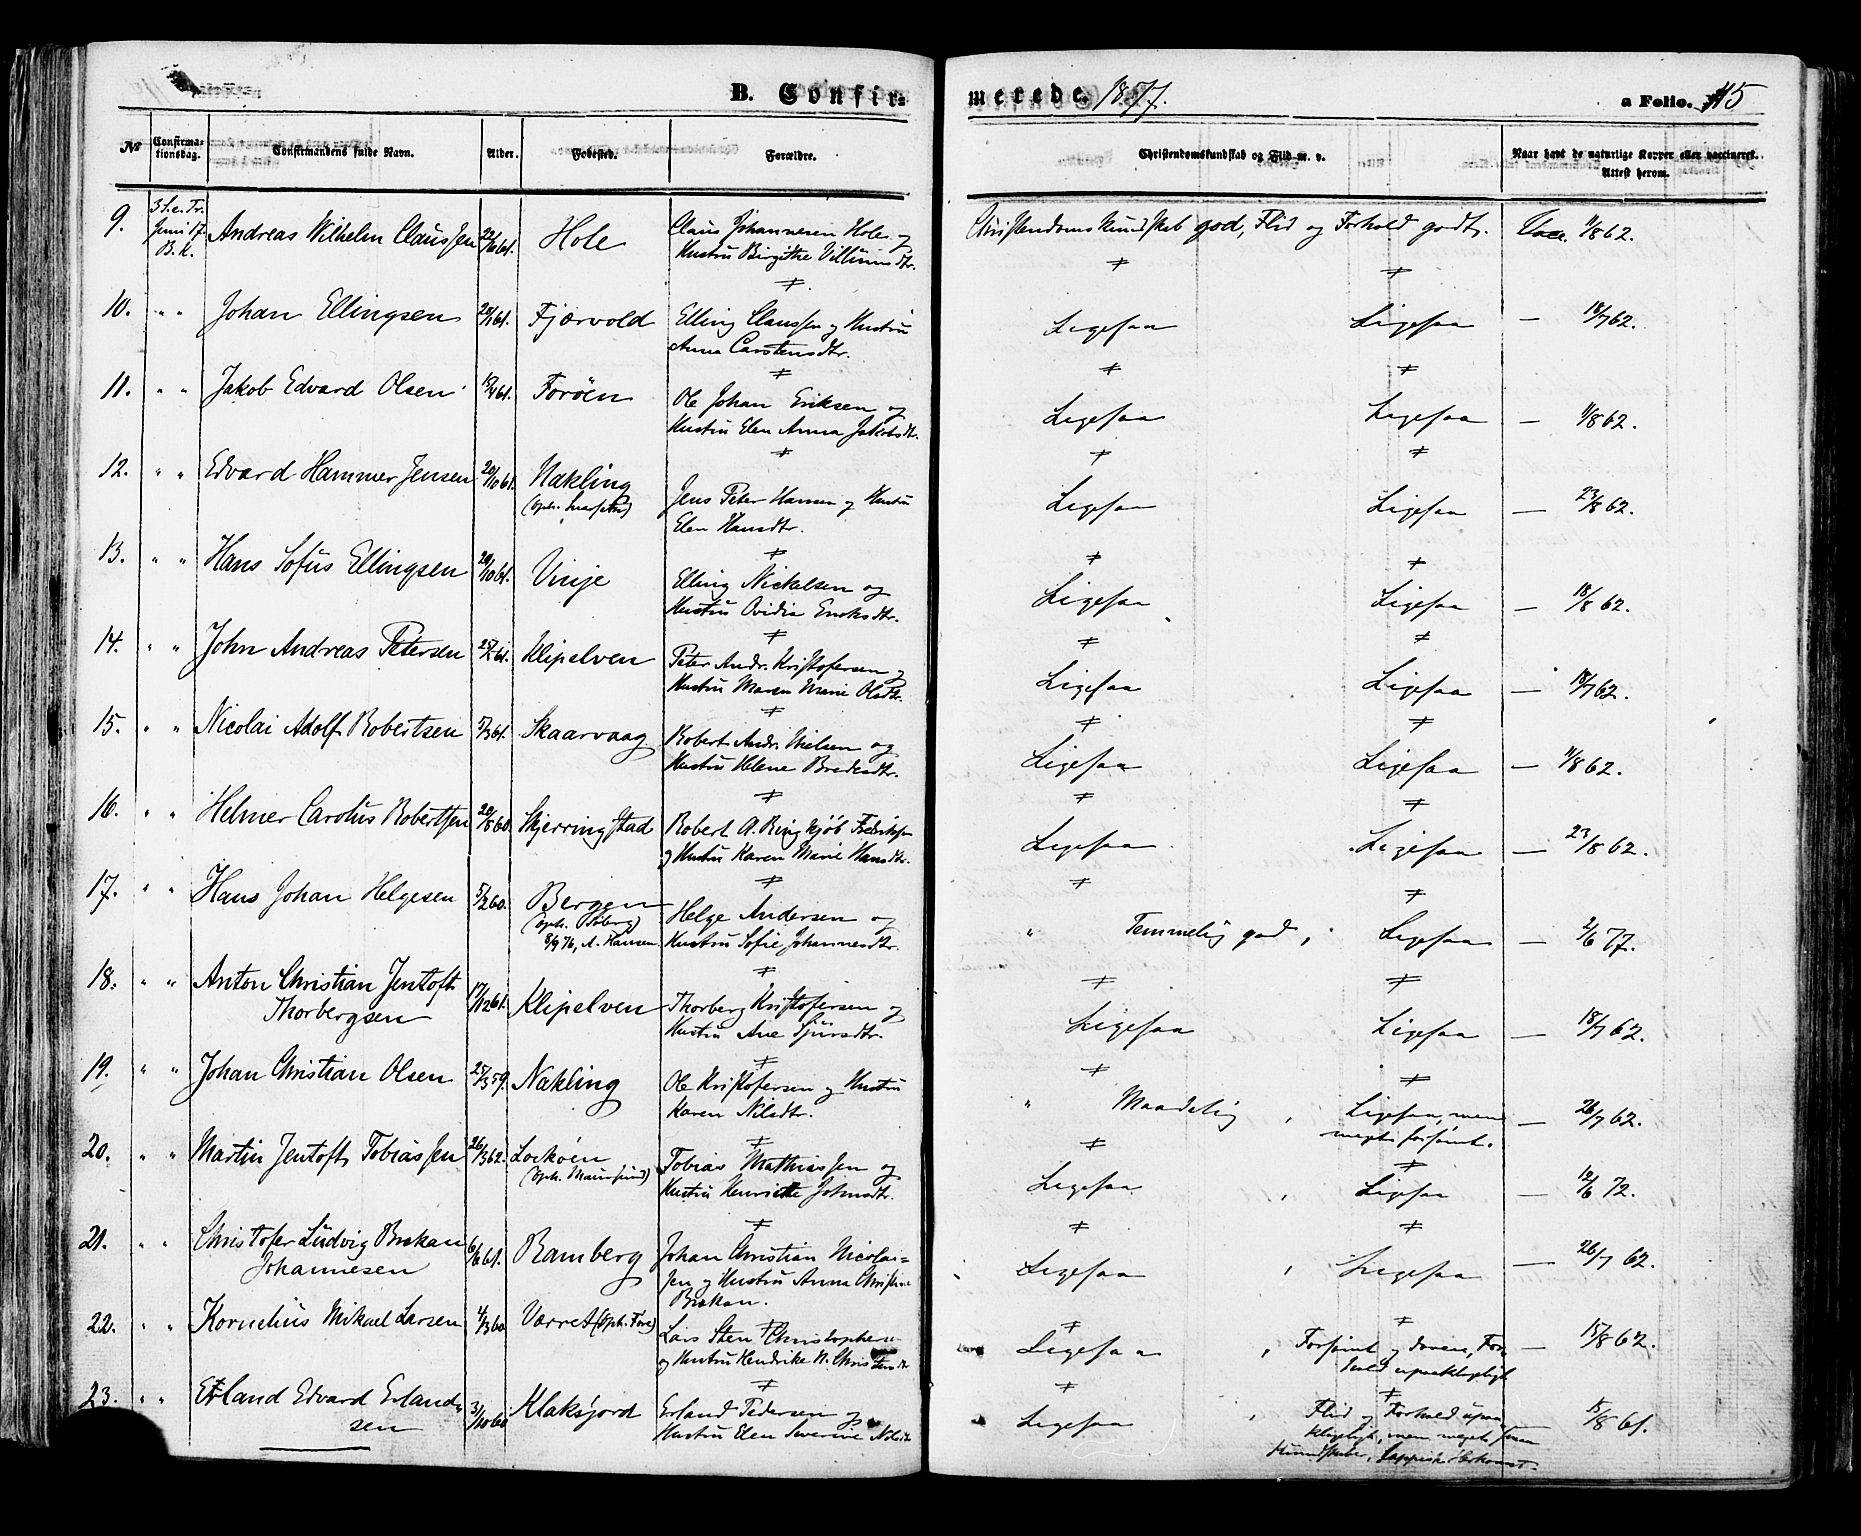 B. Confir-
merede. 1877.
a Folio. 115
№
Confirma-
tionsdag.
Confirmandens fulde Navn.
Alder.
Fødested.
Forældre.
Christendomskundskab og Flid m. v.
Naar havt de naturlige Kopper eller vaccineret.
Attest herom.
9. 3 S. e. Tr. Juni 17 B.K. Andreas Wilhelm Claussen 22/10 61. Hole
Claus Johannesen Hole og
Hustru Birgithe Villumsdtr.
Christendomskundskab god, Flid og Forhold godt. Vacc. 11/8 62.
10. " " Johan Ellingsen 20/1 61. Fjærvold
Elling Claussen og Hustru
Anna Carstensdtr.
Ligesaa Ligesaa — 18/7 62.
11. " " Jakob Edvard Olsen 13/4 61. Forøen
Ole Johan Eriksen og
Hustru Elen Anna Jakobsdtr.
Ligesaa Ligesaa — 11/8 62.
12. " " Edvard Hammer Jensen 20/10 61. Nakling
Jens Peter Hansen og Hustru
Elen Hansdtr.
Ligesaa Ligesaa — 23/8 62.
13. " " Hans Sofus Ellingsen 20/10 61. Vinje
Elling Nickelsen og
Hustru Ovidia Enoksdtr.
Ligesaa Ligesaa — 18/8 62.
14. " " John Andreas Petersen 61. Klipelven
Peter Andr. Kristofersen og
Hustru Maren Marie Olsdtr.
Ligesaa Ligesaa — 18/7 62.
15. " " Nicolai Adolf Robertsen 5/3 61. Skaarvaag
Robert Andr. Nielsen og
Hustru Helene Bredesdtr.
Ligesaa Ligesaa — 11/8 62.
16. " " Helmer Carolus Robertsen 20/8 60. Skjerringstad
Robert A. Ringkjøb Fredriksen
og Hustru Karen Marie Hansdtr.
Ligesaa Ligesaa — 23/8 62.
17. " " Hans Johan Helgesen 5/2 60. Bergen
8/9 76, A. Hansen.
Helge Andersen og
Hustru Sofie Johannesdtr.
" Temmelig god, Ligesaa — 2/6 77.
18. " " Anton Christian Jentoft
Thorbergsen 17/12 61. Klipelven
Thorberg Kristofersen og
Hustru Ane Sjursdtr.
Ligesaa Ligesaa — 18/7 62.
19. " " Johan Christian Olsen 25/3 59. Nakling
Ole Kristofersen og Hustru
Karen Nilsdtr.
" Maadelig, Ligesaa, men
meget forsømt. — 26/7 62.
20. " " Martin Jentoft Tobiassen 26/3 62. Lockøen
(oph. Maursund)
Tobias Mathiassen og
Hustru Henriette Johnsdtr.
Ligesaa, Ligesaa — 12/6 72.
21. " " Christofer Ludvig Brekan
Johannesen 6/6 61. Ramberg
Johan Christian Nicolai-
sen og Hustru Anna Christine
Brekan.
Ligesaa, Ligesaa — 26/7 62.
22. " " Kornelius Mikael Larsen 4/3 60. Værret (oph. Fore)
Lars Sten Christophersen
og Hustru Hendrike N. Christensdtr
Ligesaa, Forsømt og doven, For-
hold upaaklageligt — 15/8 62.
23. " " Erland Edvard Erland-
sen 3/10 60 Klaksjord
Erland Pedersen og
Hustru Elen Severine Nilsdtr
Ligesaa, Flid og Forhold upaa-
klageligt, men meget smaa
Kundskaber, Lappisk Herkomst. 15/8 61.